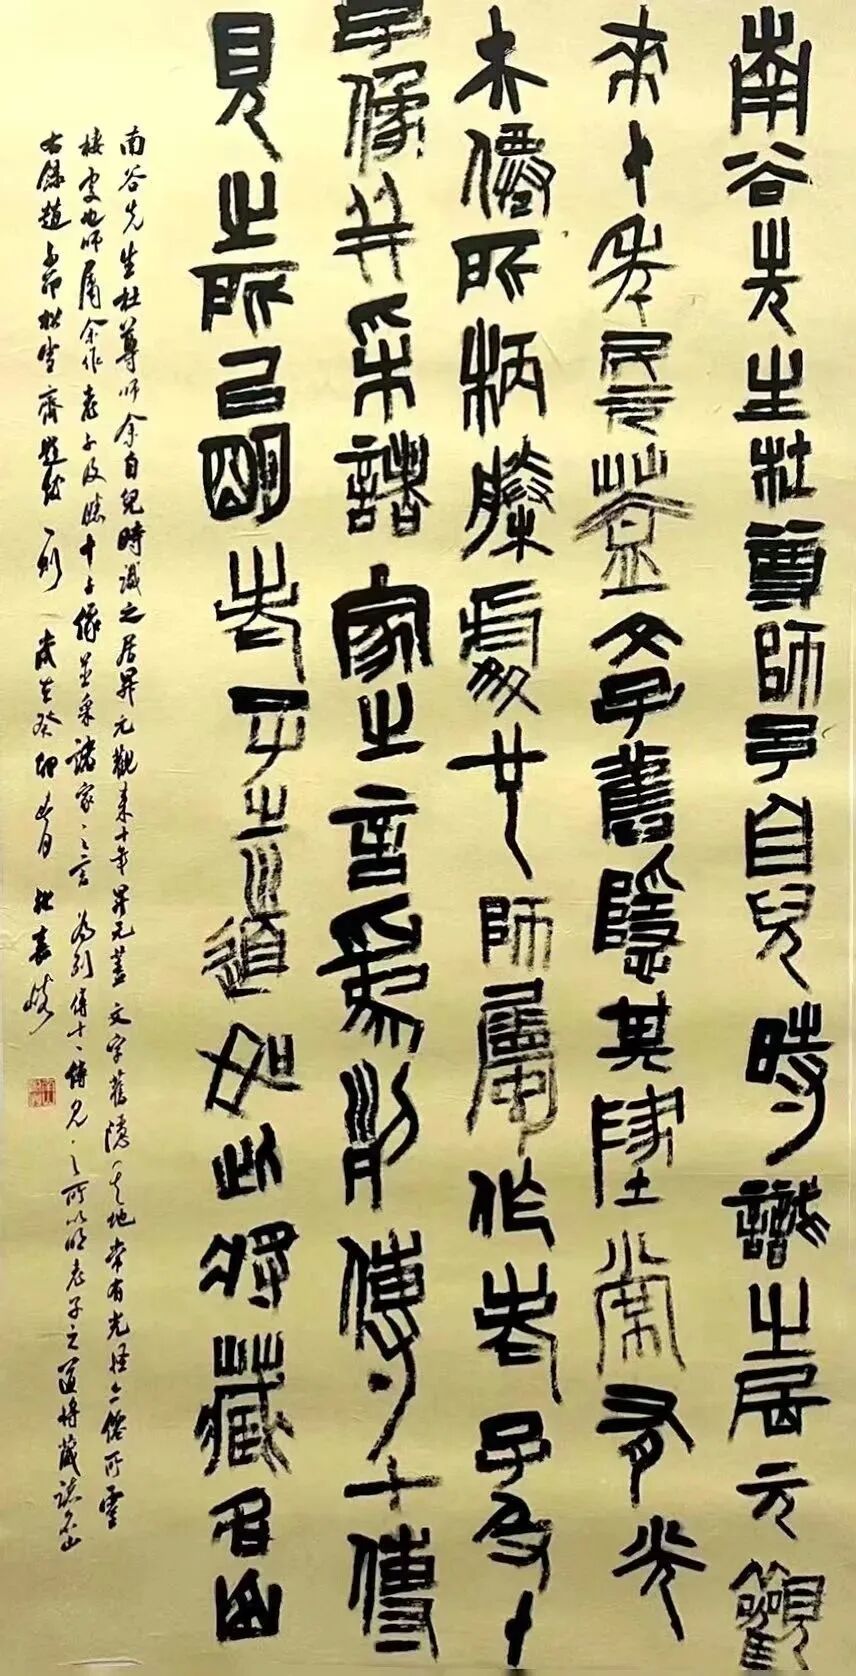 南谷先生杜尊師予自兒時識之居元觀
來十年元蓋文字舊隱其地常有光
僊所處也師屬作老子及十
子像并采諸家之言為列傳十傳
見之所以明老子之道如此將藏名山
南谷先生杜尊師余自兒時識之居昇元觀來十年昇元蓋文字舊隱其地常有光怪僊所雲
棲處也師屬余作老子及十子像並采諸家之言為列傳十一傳見之所以明老子之道將藏諸名山
右錄趙子昂松雪齋題跋一則歲在癸卯春月